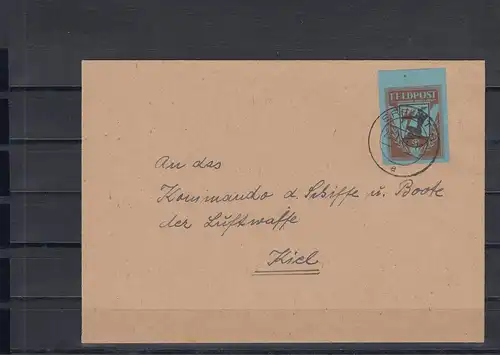 FELDPOST
An das
Kommando d. Schiffe u. Boote
der Luftwaffe
Kiel